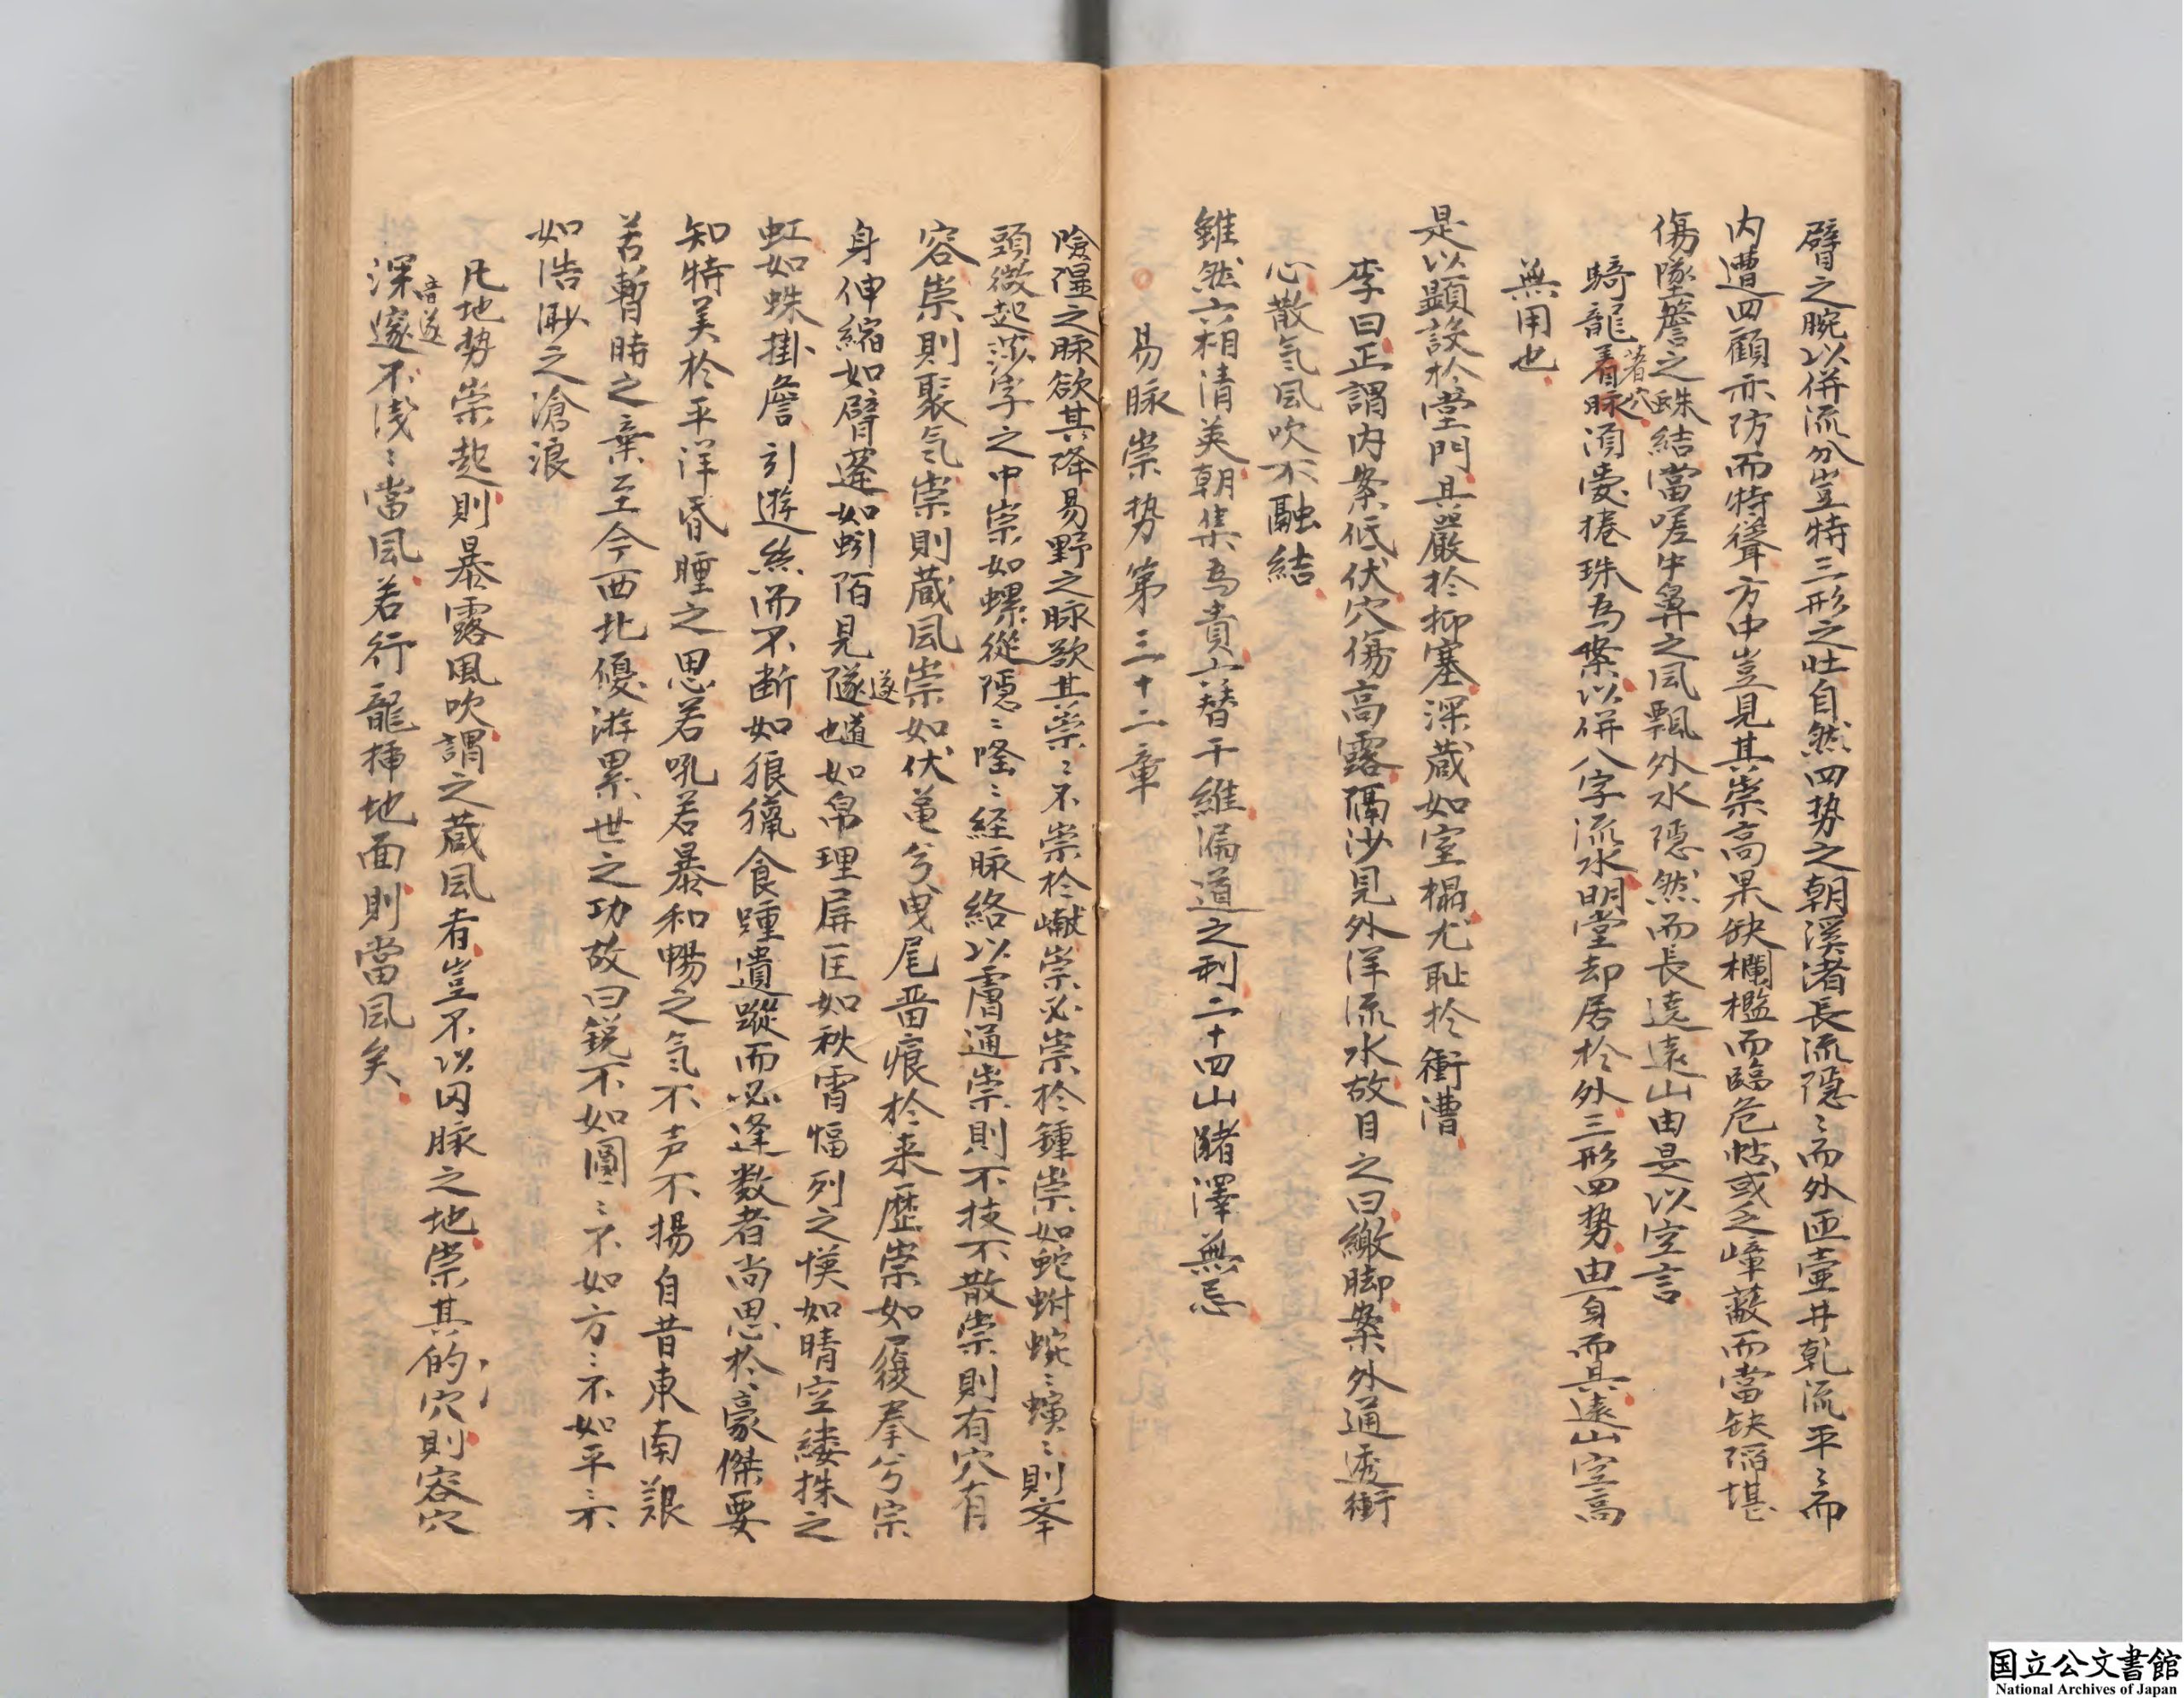 臂之腕以併流分豈特三形之吐自然四势之朝溪渚長流隠〻而外匝壷井乾流平〻而
内遭四顧亦防而特聳方中豈見其崇高果缺欄檻而臨危帖或之嶂蔽而當缺陷堪
傷墜簷之蛛結當嗟中鼻之風飄外水隠然而長遶遠山由是以空言
騎龍着脉須要捲珠為案以併八字流水明堂却居於外三形四势由一身而具遠山空高
著穴
無用也
是以顕設於堂門具嚴於抑塞深蔵如室榻尤耻於衝漕
李曰正謂内案低伏穴傷高露隔沙見外洋流水故目之曰繳脚案外通透衝
心散気風吹不融結
雖然六相清英朝集為貴六替干維漏道之利二十四山賭澤無忌
易脉崇势第三十二章
險湿之脉欲其降易野之脉欲其崇〻不崇於巘崇必崇於鍾崇如蛇蚹蜿〻蟥〻則夆
頭微起莎字之中崇如螺從隠〻隆〻経脉絡以膚通崇則不技不散崇則有穴有
容崇則聚気崇則蔵風崇如伏亀兮曳尾番痕於来歴崇如覆拳兮宗
身伸縮如臂蓬如蚓陌見隧道也如帛理屏匡如秋霄幅列之悮如晴空縷抹之
遂
虹如蛛掛簷引遊絲而不断如狼獵食踵遺蹤而必逢数者尚思於豪傑要
知特美於平洋昏睡之思若吼若暴和暢之気不声不揚自昔東南艱
若暫時之棄至今西北優游累世之功故曰鋭不如圓〻不如方〻不如平〻不
如浩渺之滄浪
凡地势崇起則暴露風吹謂之蔵風者豈不以因脉之地崇其的穴則容穴
音遂
深邃不浅〻當風若行龍挿地面則當風矣
国立公文書館
National Archives of Japan